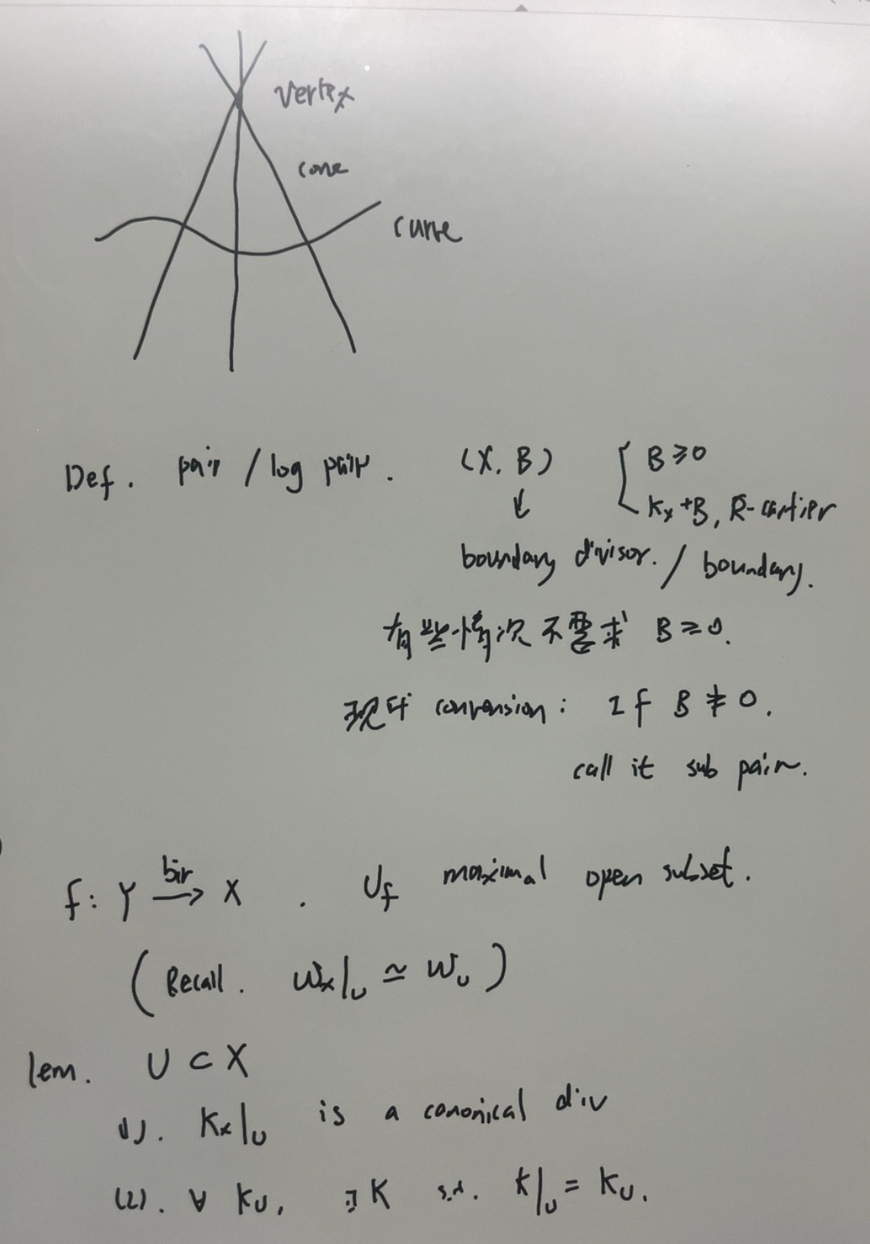 vertex
cone
curve
Def. pair / log pair. (X, B) { B ≥ 0
K_X + B, R-Cartier
↓
boundary divisor. / boundary.
有些情况不要求 B ≥ 0.
现时 convension: If B ≱ 0.
call it sub pair.
f: Y \xrightarrow{bir} X . U_f maximal open subset.
(Recall. ω_X|_U ≃ ω_U)
lem. U ⊂ X
(1). K_X|_U is a canonical div
(2). ∀ K_U, ∃ K s.t. K|_U = K_U.